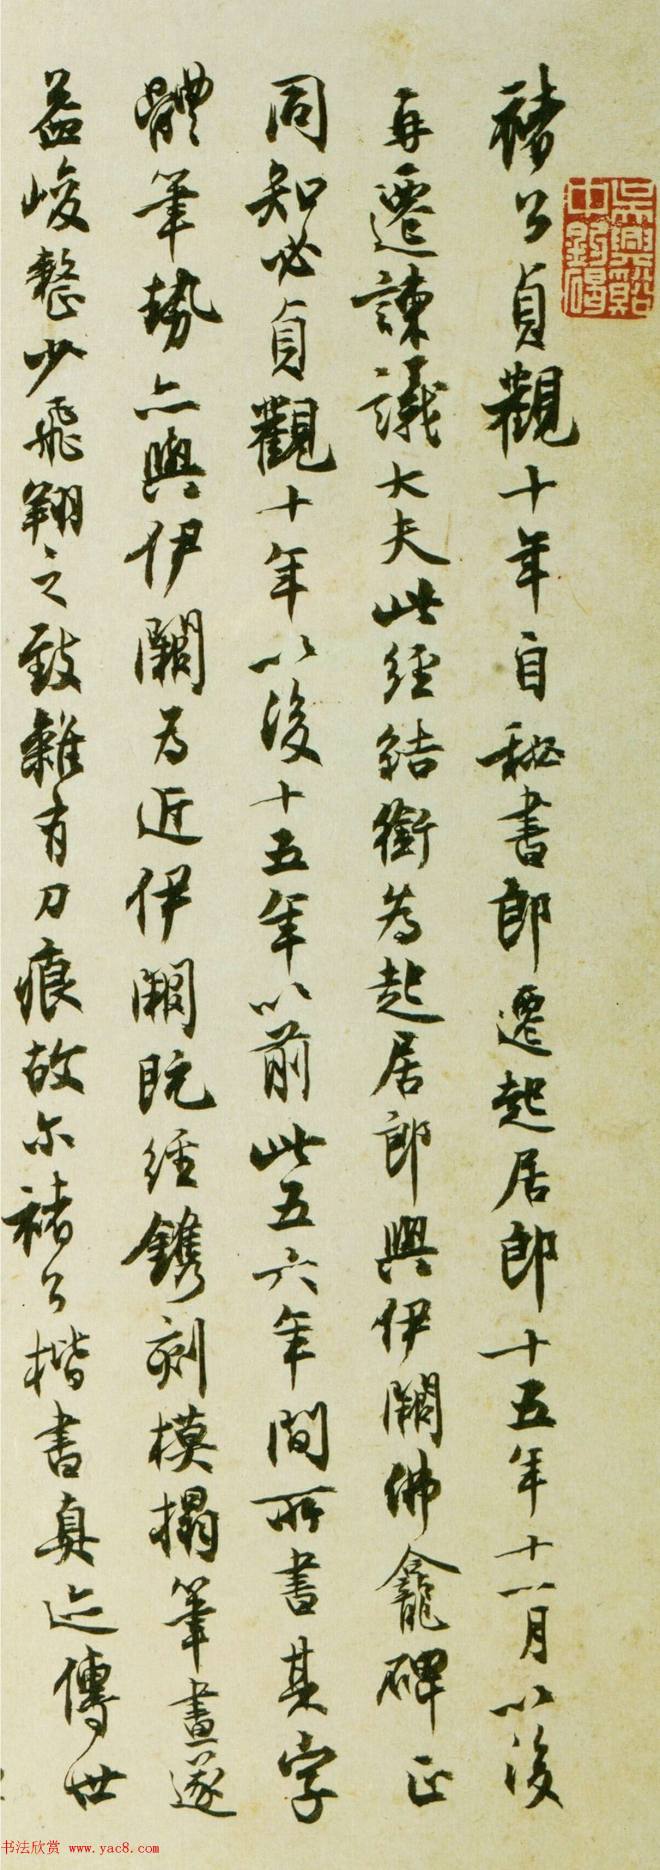 褚公貞觀十年自秘書郎遷起居郎十五年十一月以後
再遷諫議大夫此經結銜為起居郎與伊闕佛龕碑正
同知必貞觀十年以後十五年以前此五六年間所書其字
體筆勢亦與伊闕為近伊闕既經鐫刻模搨筆畫遂
益峻整少飛翔之致雜有刀痕故尔褚公楷書真迹傳世
書法欣赏 www.yac8.com